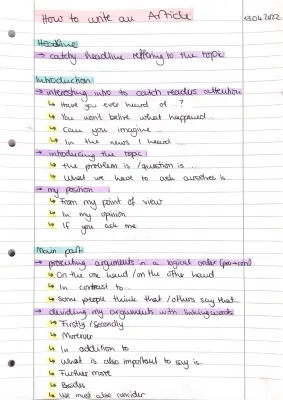 How to write an Article
13.04.2022
Headline
→ catchy headline reffering to the topic
Introduction
→ interesting intro to catch readers attention
↳ Have you ever heard of ...?
↳ You won't belive what happened...
↳ Can you imagine ...
↳ In the news I heard ...
→ introducing the topic
↳ the problem is / question is ...
↳ What we have to ask ourselves is ...
→ my position
↳ From my point of view
↳ In my opinion
↳ If you ask me
Main part
→ presenting arguments in a logical order (pro→con)
↳ On the one hand / on the other hand
↳ In contrast to...
↳ Some people think that / others say that...
→ dividing my arguments with linking words
↳ Firstly / Secondly
↳ Moreover
↳ In addition to
↳ What is also important to say is...
↳ Further more
↳ Besides
↳ We must also consider